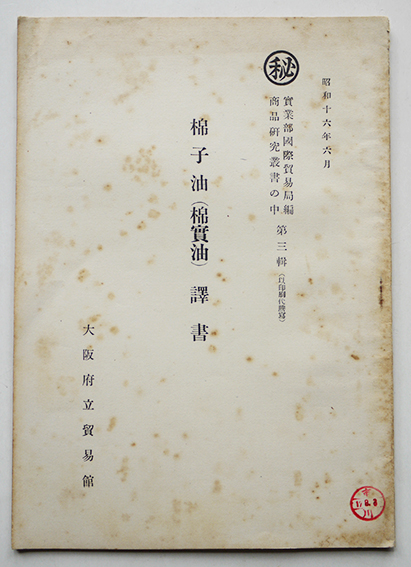 昭和十六年六月
㊙
實業部國際貿易局編
商品研究叢書の中 第三輯 (以印刷代謄寫)
棉子油(棉實油) 譯書
大阪府立貿易館